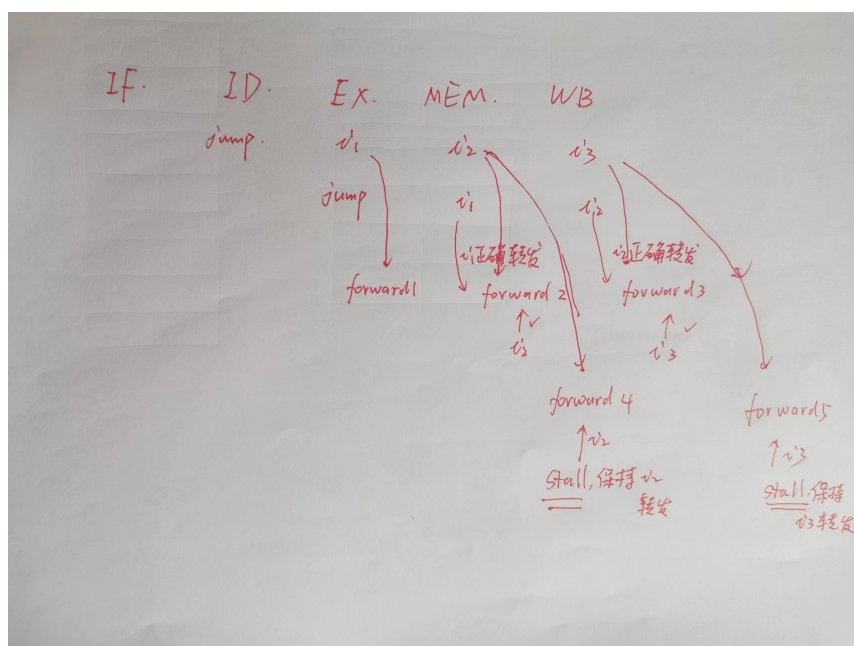 IF. ID. EX. MEM. WB
jump. i1 i2 i3
jump i1 i2
i1正确转发 i2正确转发
forward1 forward2 forward3
i2 i3
forward4 forward5
i2 i3
stall,保持i2 stall.保持
转发 i3转发